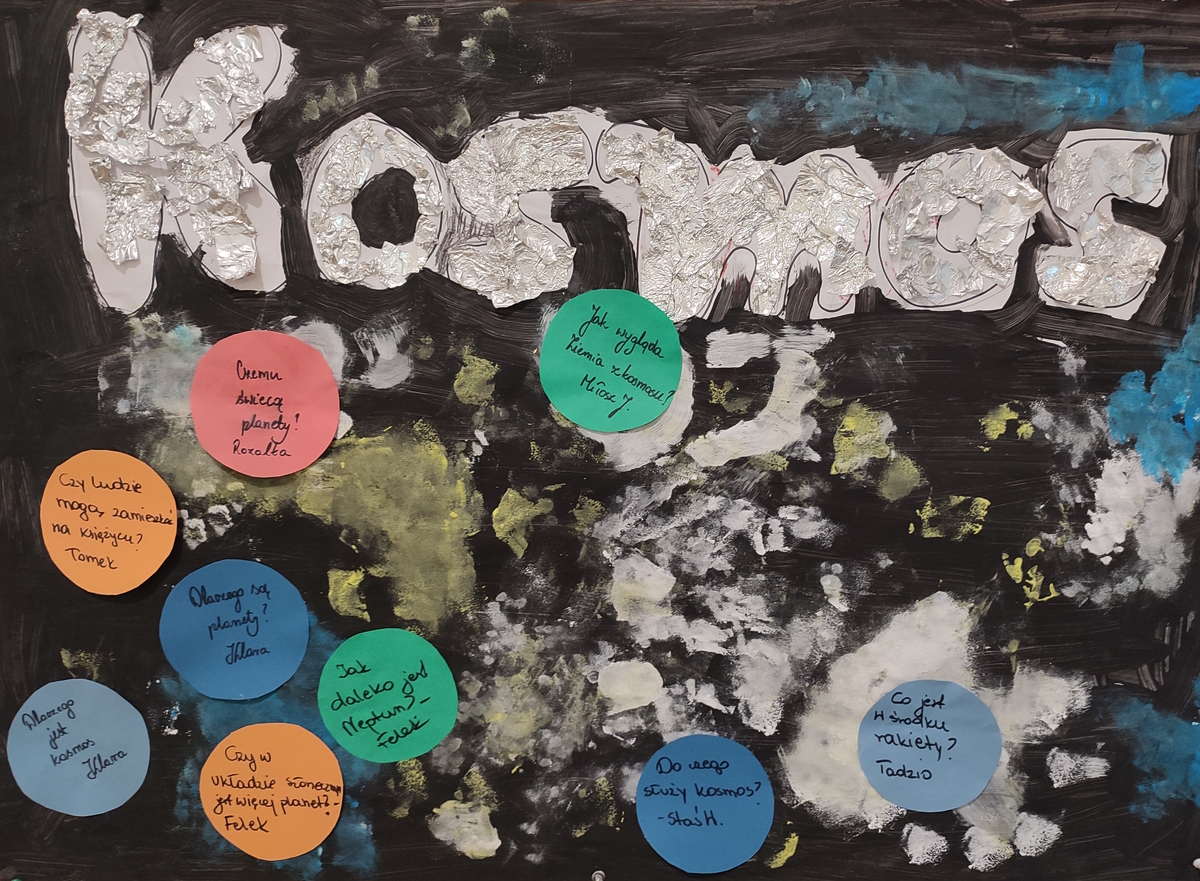 Kosmos
Jak wygląda
Ziemia z kosmosu?
Miłosz J.
Czemu
świecą
planety!
Rozalka
Czy ludzie
mogą zamieszkać
na księżycu?
Tomek
Dlaczego są
planety?
Klara
Jak
daleko jest
Neptun? -
Felek
Dlaczego
jest
kosmos
Klara
Czy w
układzie słonecznym
jest więcej planet? -
Felek
Do czego
służy kosmos?
- Staś H.
Co jest
w środku
rakiety?
Tadzio